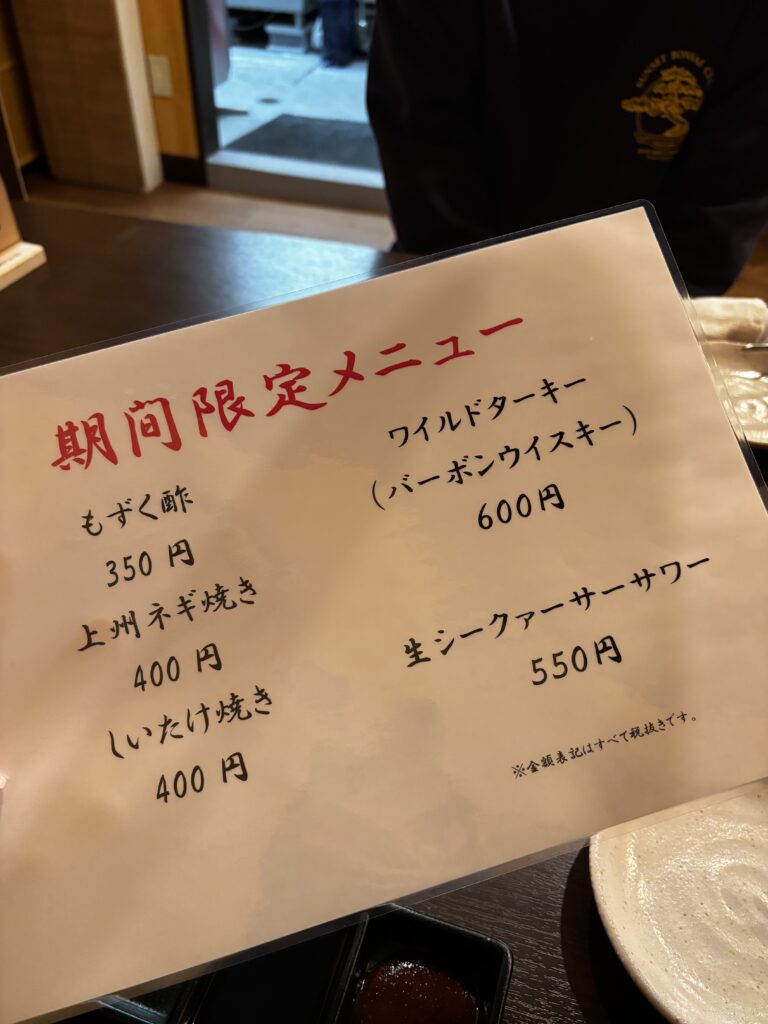 SUNSET BONSAI CO.
期間限定メニュー
もずく酢
350円
上州ネギ焼き
400円
しいたけ焼き
400円
ワイルドターキー
(バーボンウイスキー)
600円
生シークァーサーサワー
550円
※金額表記はすべて税抜きです。